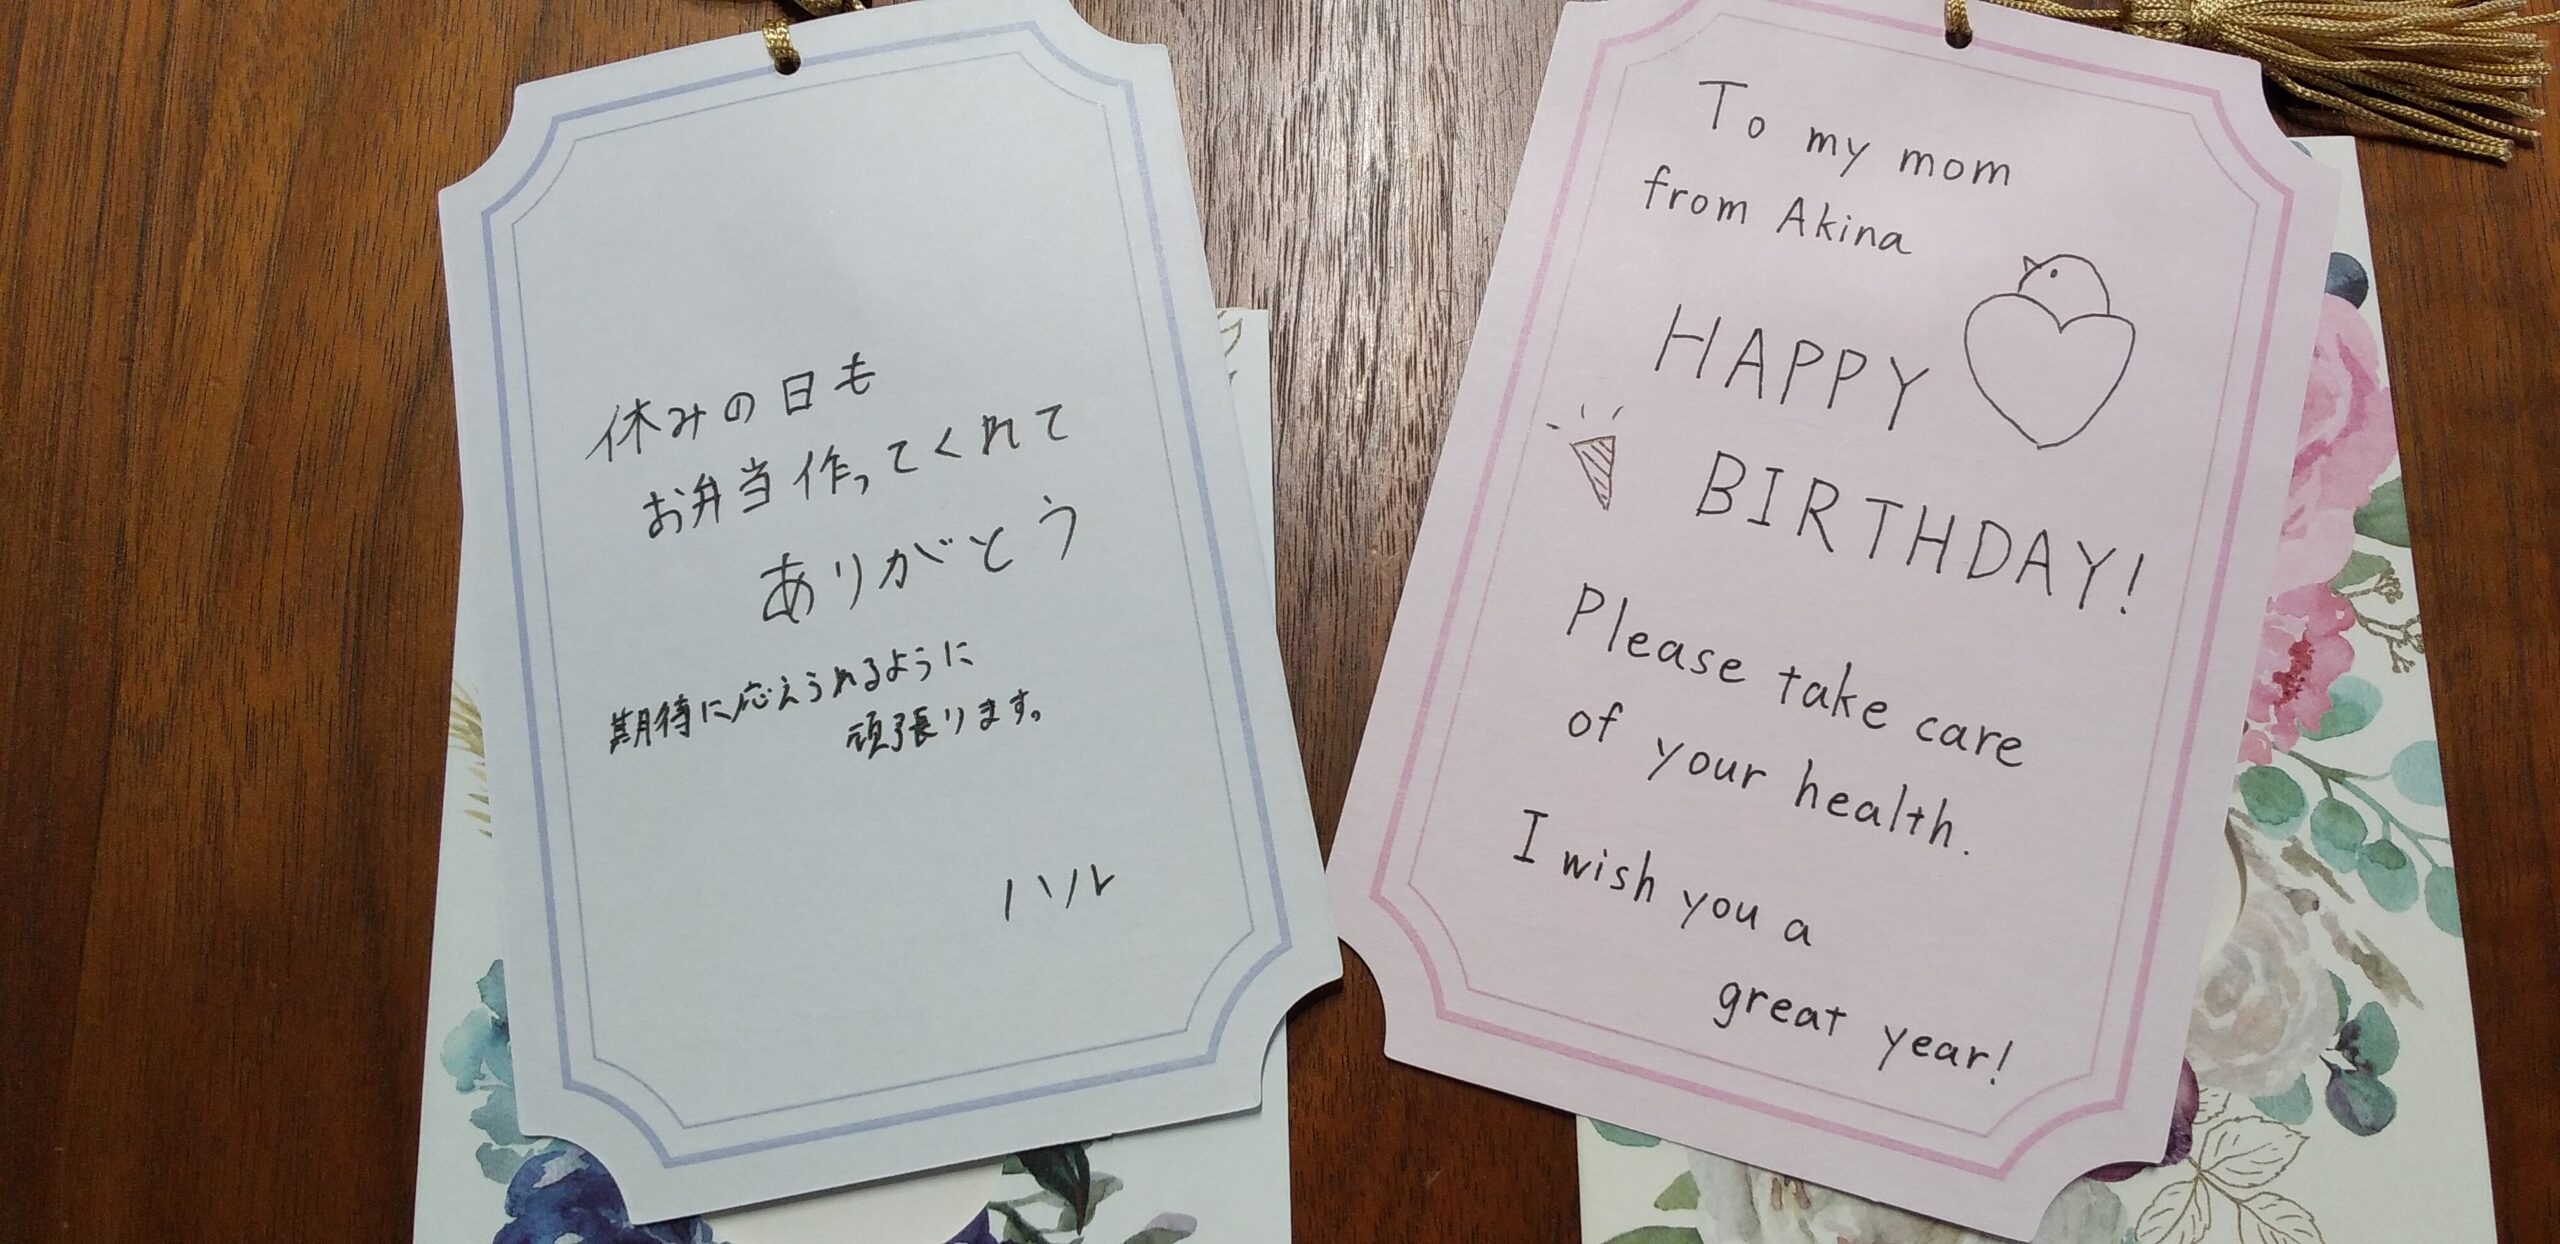 休みの日も
お弁当作ってくれて
ありがとう
期待に応えられるように
頑張ります。
ハル
To my mom
from Akina
HAPPY
BIRTHDAY!
Please take care
of your health.
I wish you a
great year!